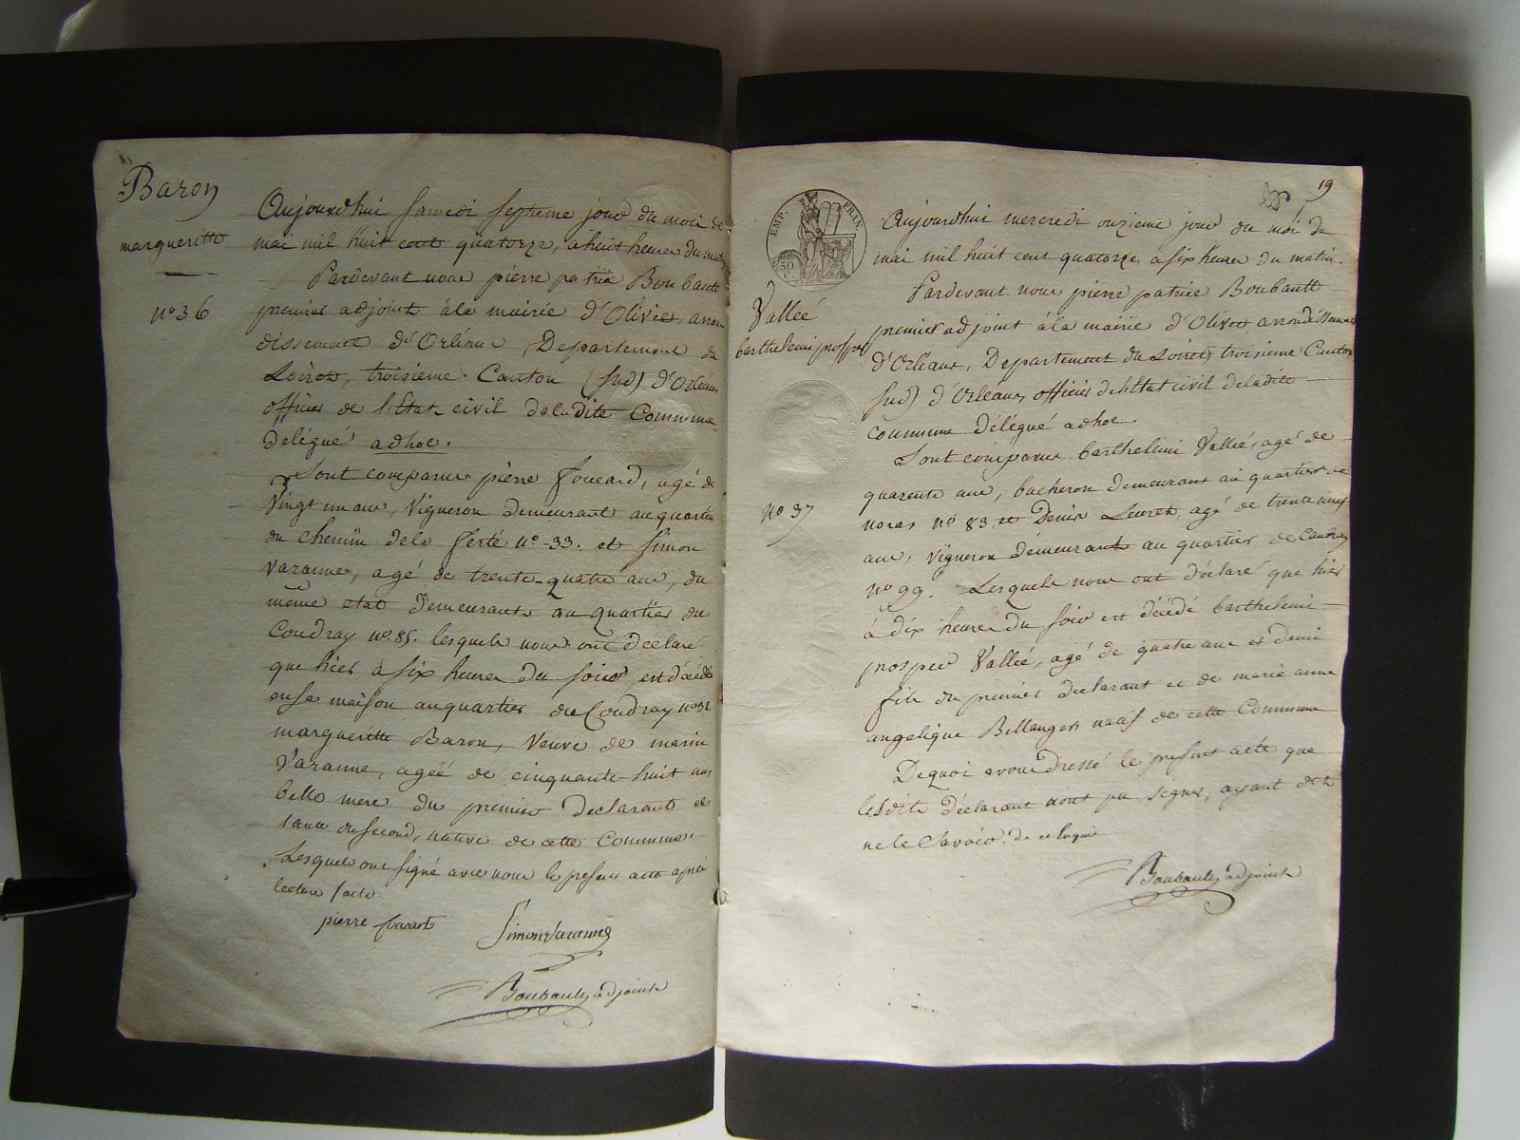 Baron
margueritte
n° 36
Aujourdhui samedi septieme jour du mois de
mai mil huit cent quatorze, a huit heures du matin
Pardevant nous pierre patrice Boubault
premier adjoint à la mairie d'Olivet, arron
dissement d'Orléans, Departement du
Loiret, troisieme Canton (sud) d'Orléans
officier de l'Etat civil de ladite Commune
delégué adhoc.
Sont comparus pierre foucard, agé de
Vingt un ans, Vigneron demeurant au quartier
du chemin dela ferté n° 33. et simon
varanne, agé de trente-quatre ans, du
même état demeurant au quartier du
Coudray n° 85. lesquels nous ont declaré
que hier à six heures du soir est décédé
en sa maison au quartier du Coudray n°
margueritte Baron, Veuve de marin
Varanne, agéé de cinquante-huit ans
belle mere du premier declarant et
tante du second, native de cette Commune.
Lesquels ont signé avec nous le présent acte après
lecture faite
pierre foucart
Simon Varanne
Boubault adjoint
19
EMP. FRAN.
50
Valleé
barthelemi prosper
n° 37
Aujourdhui mercredi onzieme jour du moi de
mai mil huit cent quatorze a six heures du matin.
Pardevant nous pierre patrice Boubault
premier adjoint à la mairie d'Olivet arrondissement
d'Orléans, Departement du Loiret, troisieme Canton
sud) d'Orléans, officier de l'Etat civil deladite
commune délégué adhoc.
Sont comparus barthelemi Valleé, agé de
quarente ans, bucheron demeurant au quartier de
noras n° 83 et Denis Leuret, agé de trente neuf
ans, vigneron demeurant au quartier de Caubray
n° 99. Lesquels nous ont déclaré que hier
à dix heures du soir est décédé barthelemi
prosper Valleé, agé de quatre ans et demi
fils du premier declarant et de marie anne
angelique Bellanger natif de cette Commune
De quoi avons dressé le présent acte que
lesdits déclarant nont pu signer, ayant dit
ne le savoir. de ce requis
Boubault adjoint